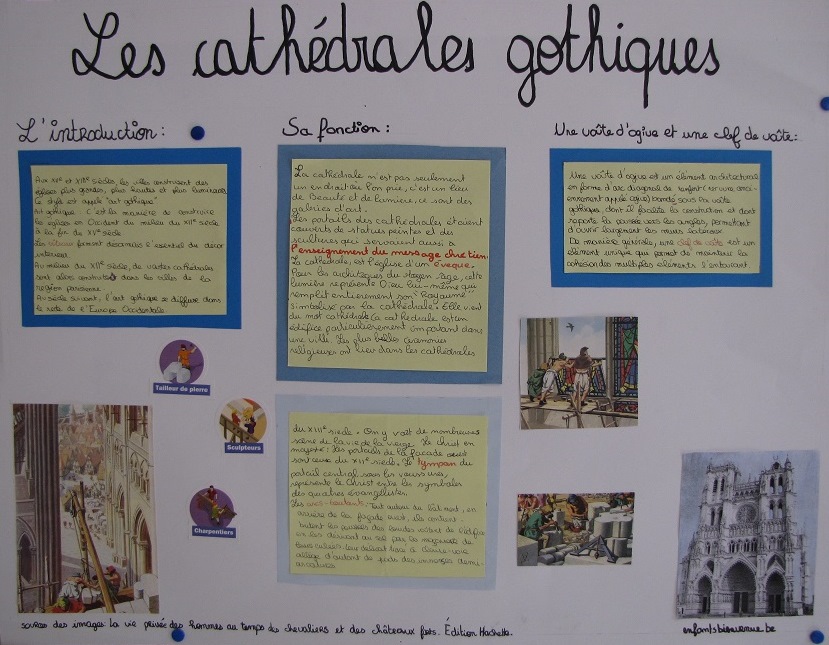 Les cathédrales gothiques
L'introduction :
Aux XIIe et XIIIe siècles, les villes construisent des
églises plus grandes, plus hautes et plus lumineuses
Ce style est appelé "art gothique"
Art gothique : C'est la manière de construire
les églises en Occident du milieu du XIIe siècle
à la fin du XVe siècle
Les vitraux forment désormais l'essentiel du décor
intérieur
Au milieu du XIIe siècle, de vastes cathédrales
sont alors construites dans les villes de la
région parisienne
Au siècle suivant, l'art gothique se diffuse dans
le reste de l'Europe Occidentale
Sa fonction :
La cathédrale n'est pas seulement
un endroit où l'on prie, c'est un lieu
de Beauté et de lumière, ce sont des
galeries d'art.
Les portails des cathédrales étaient
couverts de statues peintes et des
sculptures qui servaient aussi à
l'enseignement du message chrétien.
La cathédrale, est l'église d'un évêque.
Pour les architectes du Moyen Age, cette
lumière représente Dieu lui-même qui
remplit entièrement son "Royaume"
simbolisé par la cathédrale. Elle vient
du mot cathèdre. La cathédrale est un
édifice particulièrement important dans
une ville. Les plus belles cérémonies
religieuses ont lieu dans les cathédrales
du XIIIe siècle. On y voit de nombreuses
scène de la vie de la vierge. Le Christ en
majesté : les portails de la façade ouest
sont ceux du XIIe siècle. Le tympan du
portail central, sous les voussures,
représente le Christ entre les symboles
des quatres évangélistes.
Les arcs-boutants : Tout autour du bâtiment, en
arrière de la façade ouest, ils contre-
butent les poussées des lourdes voûtes de l'édifice
en les dérivant au sol par la maçonnerie de
leurs culées. Leur délicat tracé à claire-voie
allège d'autant le poids des immenses demi-
arcatures
Une voûte d'ogive et une clef de voûte :
Une voûte d'ogive est un élément architectural
en forme d'arc diagonal de renfort (nervure anci-
ennement appelé ogive) bandé sous la voûte
gothique, dont il facilite la construction et dont
reporte la poussée vers les angles, permettant
d'ouvrir largement les murs latéraux.
De manière générale, une clef de voûte est un
élément unique qui permet de maintenir la
cohésion des multiples éléments l'entourant
Tailleur de pierre
Sculpteurs
Charpentiers
sources des images : La vie privée des hommes au temps des chevaliers et des châteaux forts. Édition Hachette.
enfantsbienvenue.be